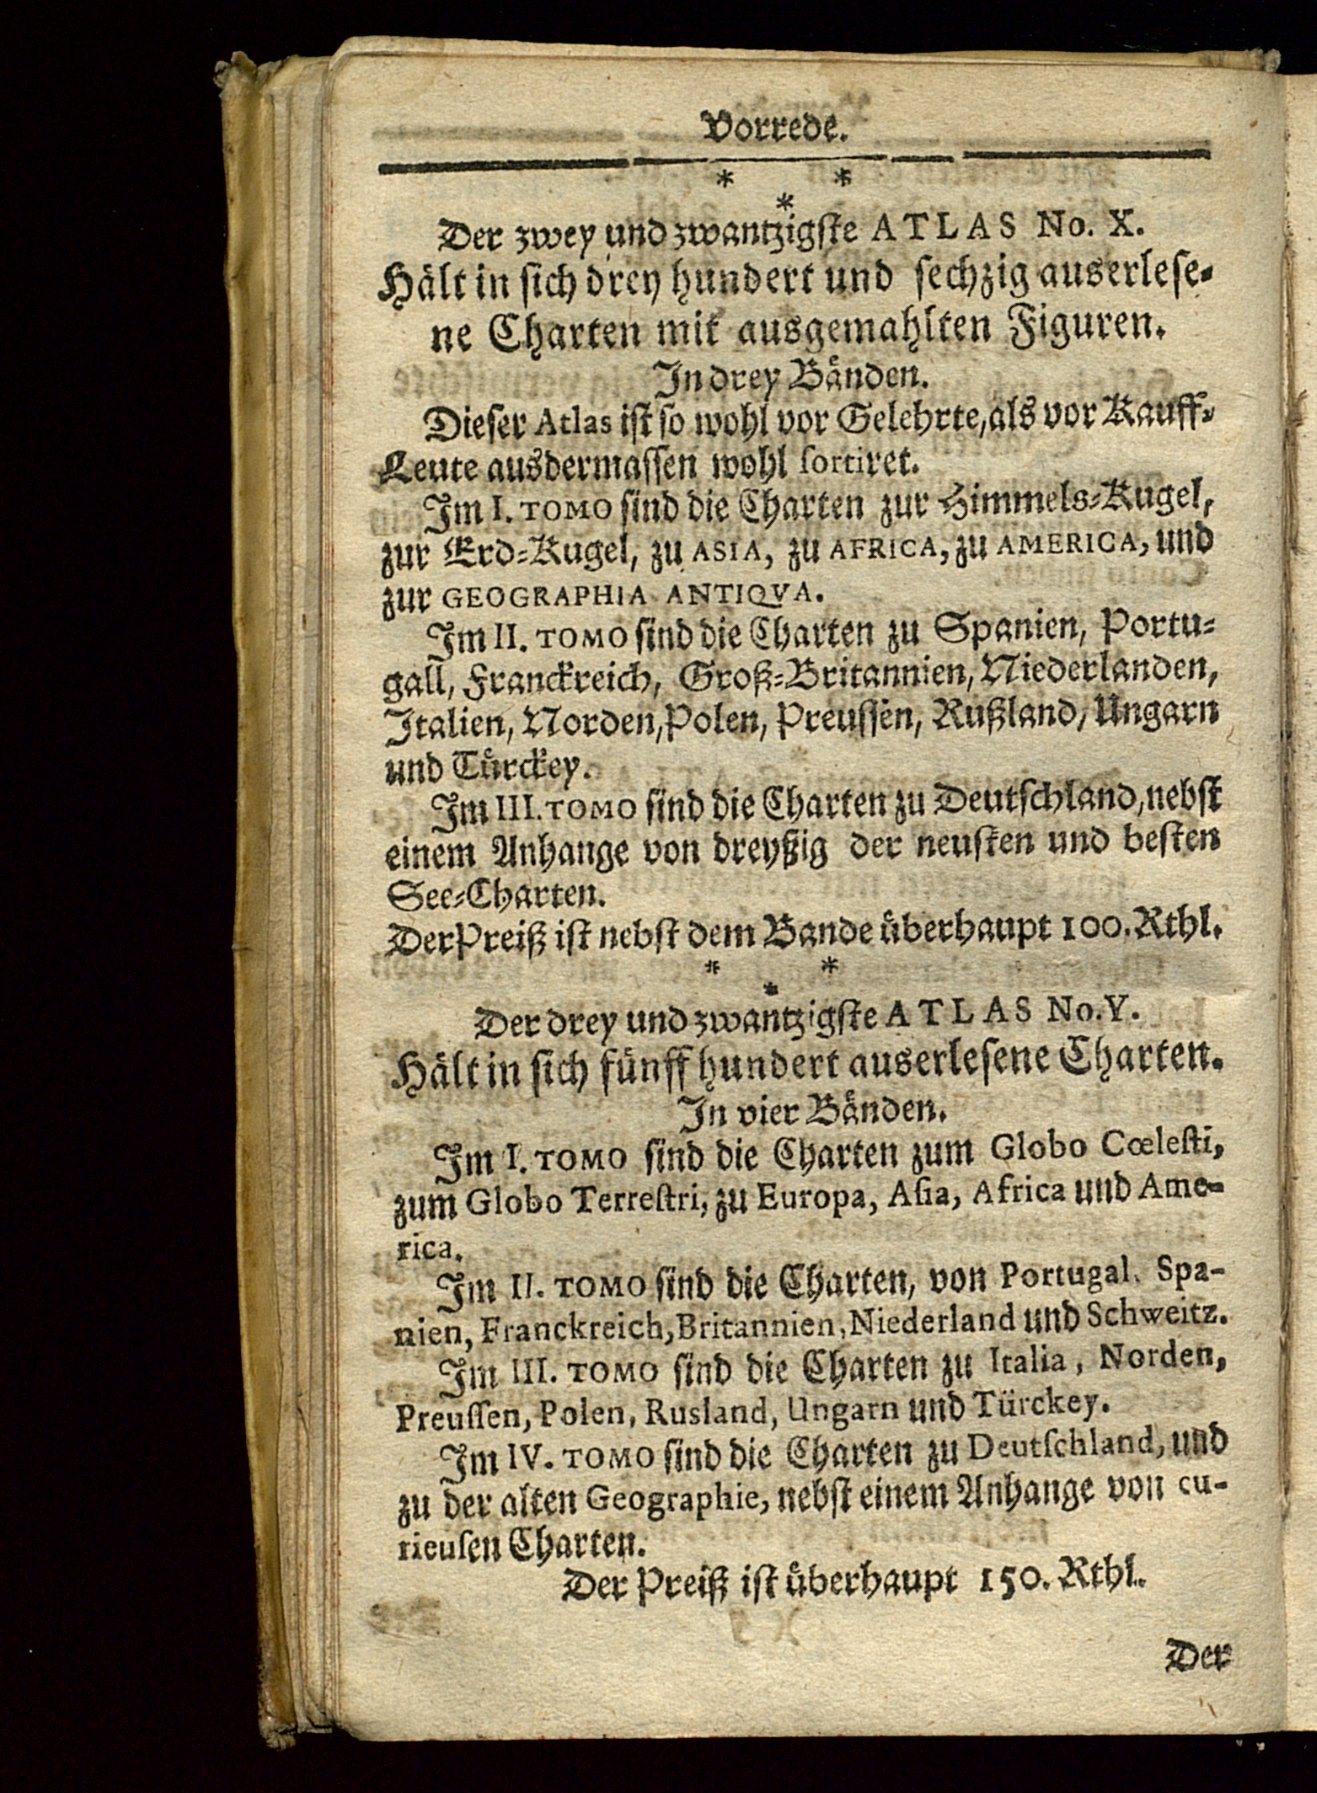 Vorrede.
* *
*
Der zwey und zwantzigste ATLAS No. X.
Hält in sich drey hundert und sechzig auserlese-
ne Charten mit ausgemahlten Figuren.
In drey Bänden.
Dieser Atlas ist so wohl vor Gelehrte, als vor Kauff-
Leute ausdermassen wohl sortiret.
Im I. TOMO sind die Charten zur Himmels-Kugel,
zur Erd-Kugel, zu ASIA, zu AFRICA, zu AMERICA, und
zur GEOGRAPHIA ANTIQVA.
Im II. TOMO sind die Charten zu Spanien, Portu-
gall, Franckreich, Groß-Britannien, Niederlanden,
Italien, Norden, Polen, Preussen, Rußland, Ungarn
und Türckey.
Im III. TOMO sind die Charten zu Deutschland, nebst
einem Anhange von dreyßig der neusten und besten
See-Charten.
Der Preiß ist nebst dem Bande überhaupt 100. Rthl.
* *
*
Der drey und zwantzigste ATLAS No. Y.
Hält in sich fünff hundert auserlesene Charten.
In vier Bänden.
Im I. TOMO sind die Charten zum Globo Cœlesti,
zum Globo Terrestri, zu Europa, Asia, Africa und Ame-
rica.
Im II. TOMO sind die Charten, von Portugal, Spa-
nien, Franckreich, Britannien, Niederland und Schweitz.
Im III. TOMO sind die Charten zu Italia, Norden,
Preussen, Polen, Rusland, Ungarn und Türckey.
Im IV. TOMO sind die Charten zu Deutschland, und
zu der alten Geographie, nebst einem Anhange von cu-
rieusen Charten.
Der Preiß ist überhaupt 150. Rthl.
Der